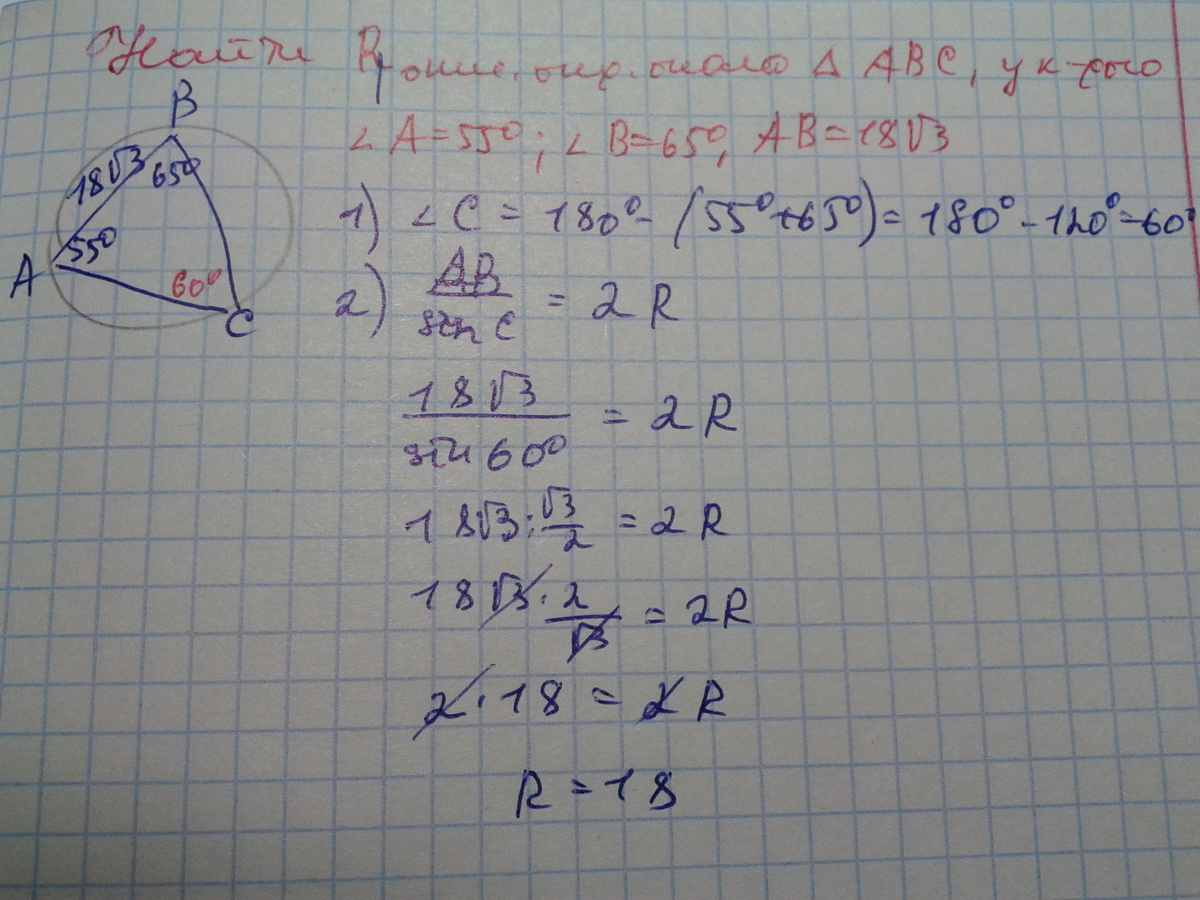 Найти R, опис. окр. около Δ ABC, у к-рого
∠A=55°; ∠B=65°, AB=18√3
B
18√3
65°
55°
A
60°
C
1) ∠C = 180° - (55°+65°) = 180° - 120° = 60°
2) AB/sin C = 2R
18√3/sin 60° = 2R
18√3 : √3/2 = 2R
18√3 · 2/√3 = 2R
2 · 18 = 2R
R = 18